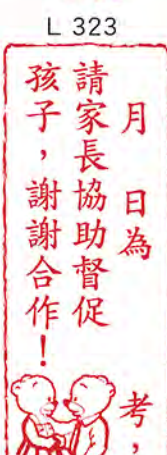 L 323
月　日為　考，
請家長協助督促
孩子，謝謝合作！